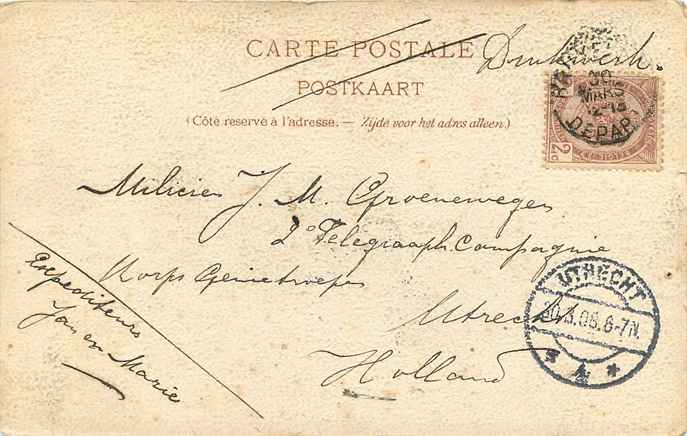 CARTE POSTALE
Drukwerk.
POSTKAART
(Côté reservé à l'adresse. — Zijde voor het adres alleen.)
30
MARS
DEPART
2c
Milicien J. M. Groeneweger
2e Telegraaph. Compagnie
Korps Genietroepen
Utrecht
Holland
Expediteurs
Jan en Marie
UTRECHT
30.3.06.6-7N.
* 4 *